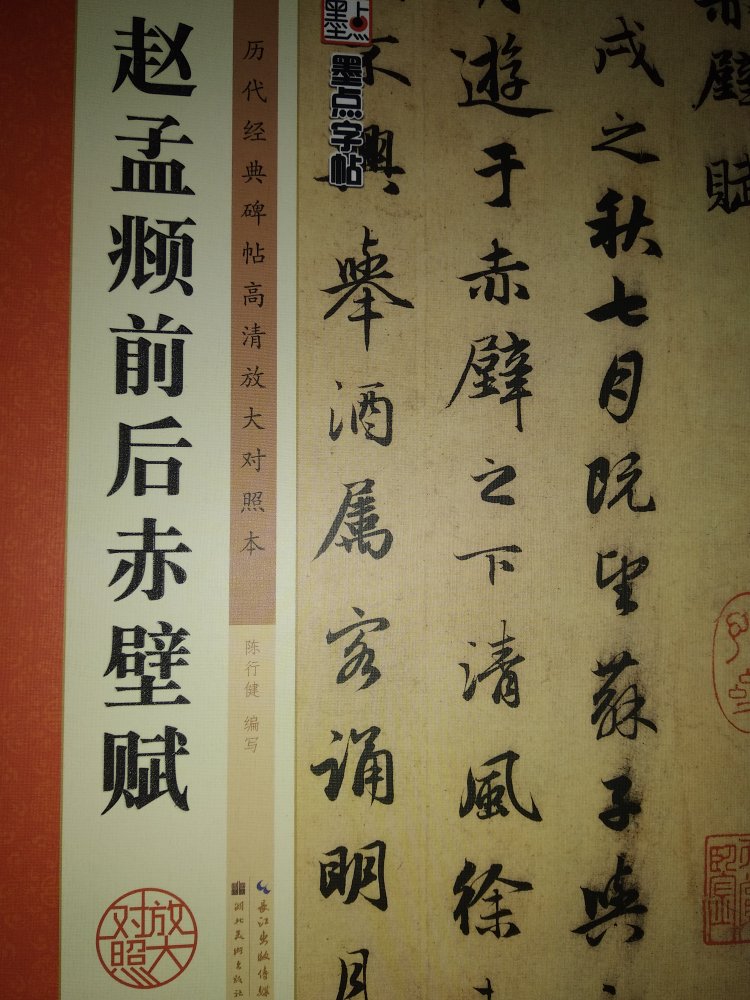 赵孟頫前后赤壁赋
放大
对照
历代经典碑帖高清放大对照本
陈行健 编写
長江出版傳媒
湖北美术出版社
墨点
墨点字帖
赤壁賦
戌之秋七月既望蘇子與
遊于赤壁之下清風徐
不興舉酒属客誦明月